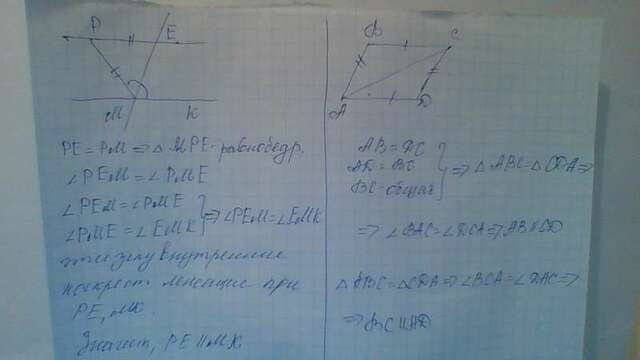 P E
M K
PE = PM => △ MPE - равнобедр.
∠PEM = ∠PME
∠PEM = ∠PME
∠PME = ∠EMK } => ∠PEM = ∠EMK
эти углы внутренние
накрест лежащие при
PE, MK.
Значит, PE || MK
B C
A D
AB = DC
AD = BC
BC - общая } => △ ABC = △ CDA =>
=> ∠BAC = ∠DCA => AB || CD
△ ABC = △CDA => ∠BCA = ∠DAC =>
=> BC || AD